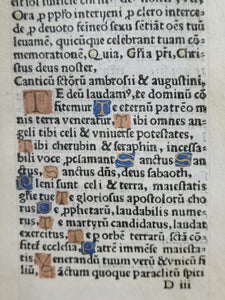 Ora, p ppľo interueni p clero interce
de, p deuoto femineo sexu sētiāt oēs tuū
leuamē, quicūque celebrant tuam cō
memorationē. Quia, Gr̄ia pri, Chris
dus deus noster.
Canticū sctōrū ambrosii & augustini,
TE deū laudam⁹, te dominū cō
fitemur Te eternū patrē o
nis terra veneratur, Tibi omnes an
geli tibi celi & vniuerse potestates,
Tibi cherubin & seraphin, incessa
bili voce, pclamant Sanctus San
ctus, Sanctus dn̄s, deus sabaoth,
Pleni sunt celi & terra, maiestatis
glorie tue Te gloriosus apostolorū cho
rus Te, pphetarū, laudabilis numer⁹
Te martyrū candidatus, laudat exer
citus. Te p orbē terrarū sctā cō
fitet ecclesia, Patrē immēse maiesta
tis Venerandū tuum verū & vnicū fi
liū, Sāctum quoque paraclitū spiri
D iii